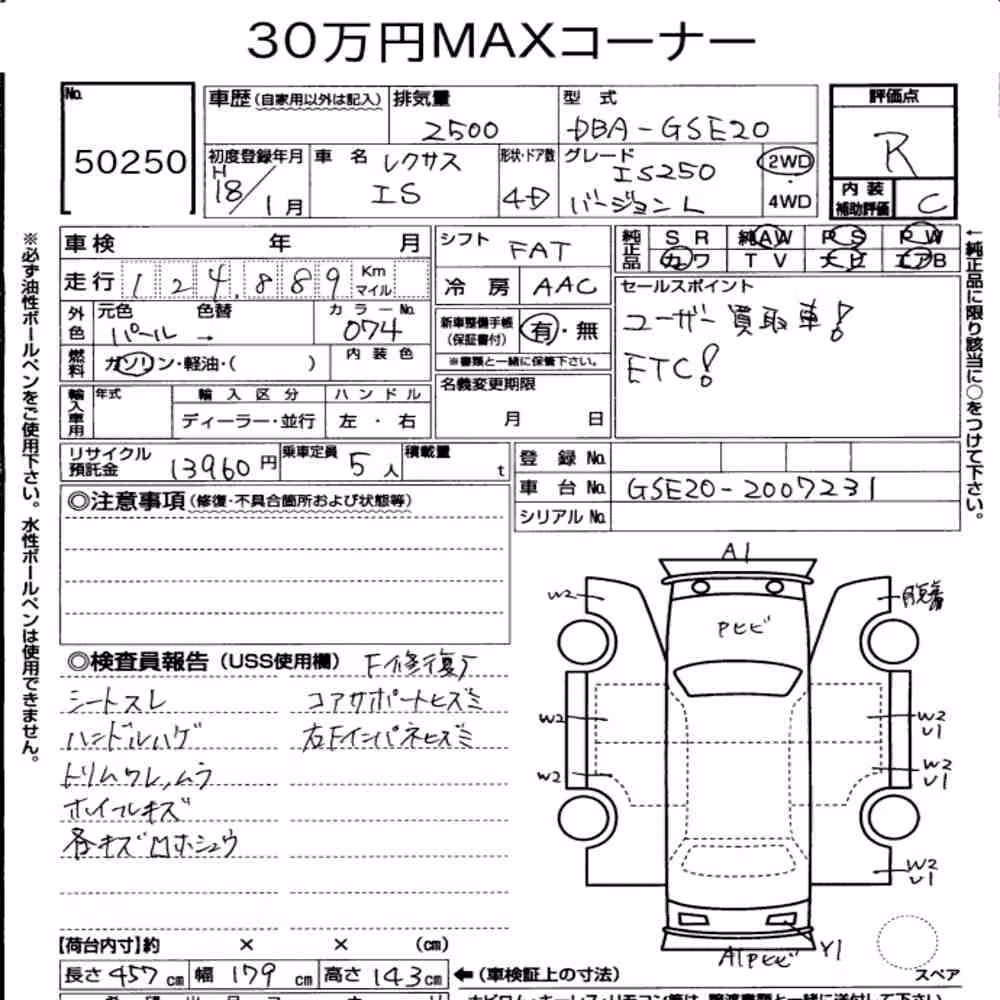 30万円MAXコーナー
No. 50250
車歴(自家用以外は記入)
排気量 2500
型式 DBA-GSE20
評価点 R
内装補助評価 C
初度登録年月 H18/1月
車名 レクサス IS
形状・ドア数 4D
グレード IS250 バージョンL
2WD・4WD
車検 年 月
走行 124,889 Km マイル
シフト FAT
冷房 AAC
純正品 SR 純AW PS PW
カワ TV エアB
外色 元色 パール → 色替 カラーNo. 074
燃料 ガソリン・軽油・( )
内装色
新車整備手帳(保証書付) 有・無
※書類と一緒に保管下さい。
セールスポイント
ユーザー買取車!
ETC!
輸入車用 年式 輸入区分 ハンドル
ディーラー・並行 左・右
名義変更期限 月 日
リサイクル預託金 13960円
乗車定員 5人
積載量 t
登録No.
車台No. GSE20-2007231
シリアルNo.
◎注意事項(修復・不具合箇所および状態等)
◎検査員報告(USS使用欄) F修復ア
シートスレ コアサポートヒズミ
ハンドルハゲ 右Fインパネヒズミ
トリムワレ,ムラ
ホイールキズ
各キズ凹ホシュウ
A1
W2 脱着
Pヒビ
W2 W2 U1
W2 W2 U1
W2 U1
A1Pヒビ Y1
スペア
【荷台内寸】約 × × (cm)
長さ 457cm 幅 179cm 高さ 143cm ←(車検証上の寸法)
※必ず油性ボールペンをご使用下さい。水性ボールペンは使用できません。
←純正品に限り該当に○をつけて下さい。